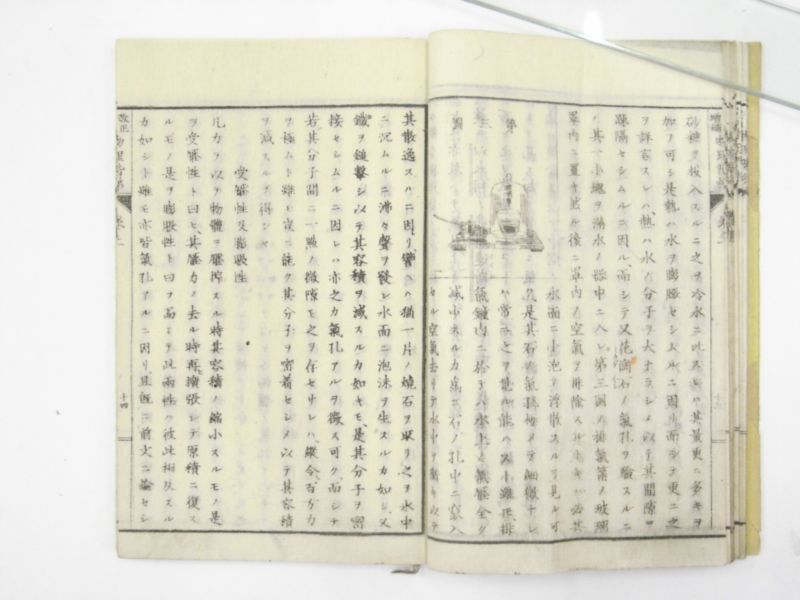 砂糖ヲ投入スルニ之ヲ冷水ニ比スレハ其量更ニ多キヲ
加フ可シ是熱ハ水ヲ膨脹セシムルニ因リ而シテ更ニ之
ヲ詳言スレハ熱ハ水ノ分子ヲ大ナラシメ以テ其間隙ヲ
疎隔セシムルニ因ル而シテ又花崗石ノ氣孔ヲ驗スルニ
ハ其一小塊ヲ滿水ノ器中ニ入レ第三圖ノ排氣鐘ノ玻璃
罩内ニ置キ然ル後ニ罩内ノ空氣ヲ排除スルトキハ必其
第三圖
水面ニ小泡ノ浮散スルヲ見ル可
シ是其石ノ氣孔極メテ細微ナレ
ハ常ニ之ヲ見ル能ハスト雖モ排
氣鐘内ニ於テハ水上ノ氣壓全ク
減少スルカ爲ニ石ノ孔中ニ竄入
セル空氣去リテ水中ヲ
其散逸スルニ因リ譬ヘハ猶一片ノ燒石ヲ取リ之ヲ水中
ニ沉ムルニ沸々聲ヲ發シ水面ニ泡沫ヲ生スルカ如シ又
鐵ヲ鎚擊シ以テ其容積ヲ減スルカ如キモ是其分子ヲ密
接セシムルニ因レハ亦之カ氣孔アルヲ徴ス可ク而シテ
若其分子間ニ一點ノ微隙モ之ヲ存セサレハ縱令百方力
ヲ極ムト雖モ豈ニ能ク其分子ヲ密着セシメ以テ其容積
ヲ減スルヲ得ンヤ
受壓性及膨脹性
凡力ヲ以テ物體ヲ壓搾スル時其容積ノ縮小スルモノ是
ヲ受壓性ト曰ヒ其壓力ノ去ル時再擴張シテ原積ニ復ス
ルモノ是ヲ膨脹性ト曰フ而シテ此兩性ハ彼此相反スル
カ如シト雖モ亦皆氣孔アルニ因リ且既ニ前文ニ論セシ
改正
十四